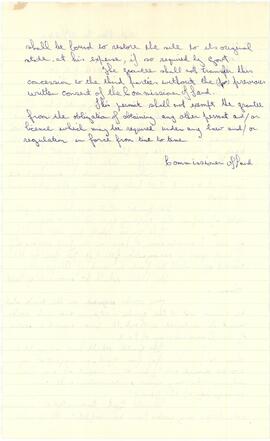 shall be found to restore the site to its original
state, at his expense, if so required by Govt.
The grantee shall not transfer this
concession to the third parties without the previous
written consent of the Commission of land.
This permit shall not exempt the grantee
from the obligation of obtaining any other permit and/or
licence which may be required under any law and/or
regulation in force from time to time.
Commissioner of land